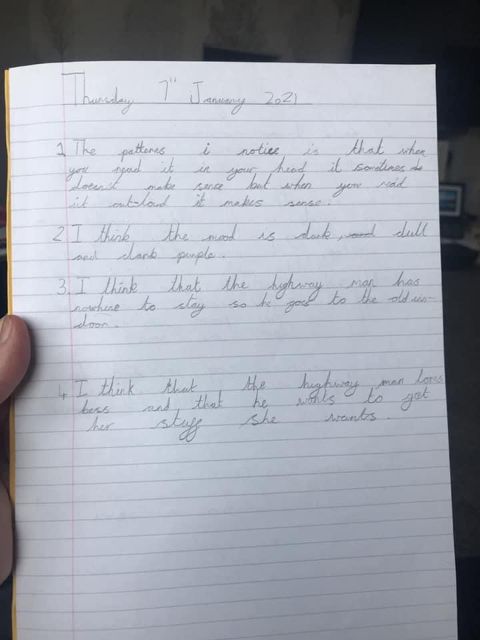 Thursday 7th January 2021
1. The patterns i notices is that when
you read it in your head it somtimes do
doesn't make sense but when you read
it out-loud it makes sense.
2. I think the mood is dark, and dull
and dark purple.
3. I think that the highway man has
nowhere to stay so he goes to the old inn-
door.
4. I think that the highway man loves
bess and that he wants to get
her stuff she wants.